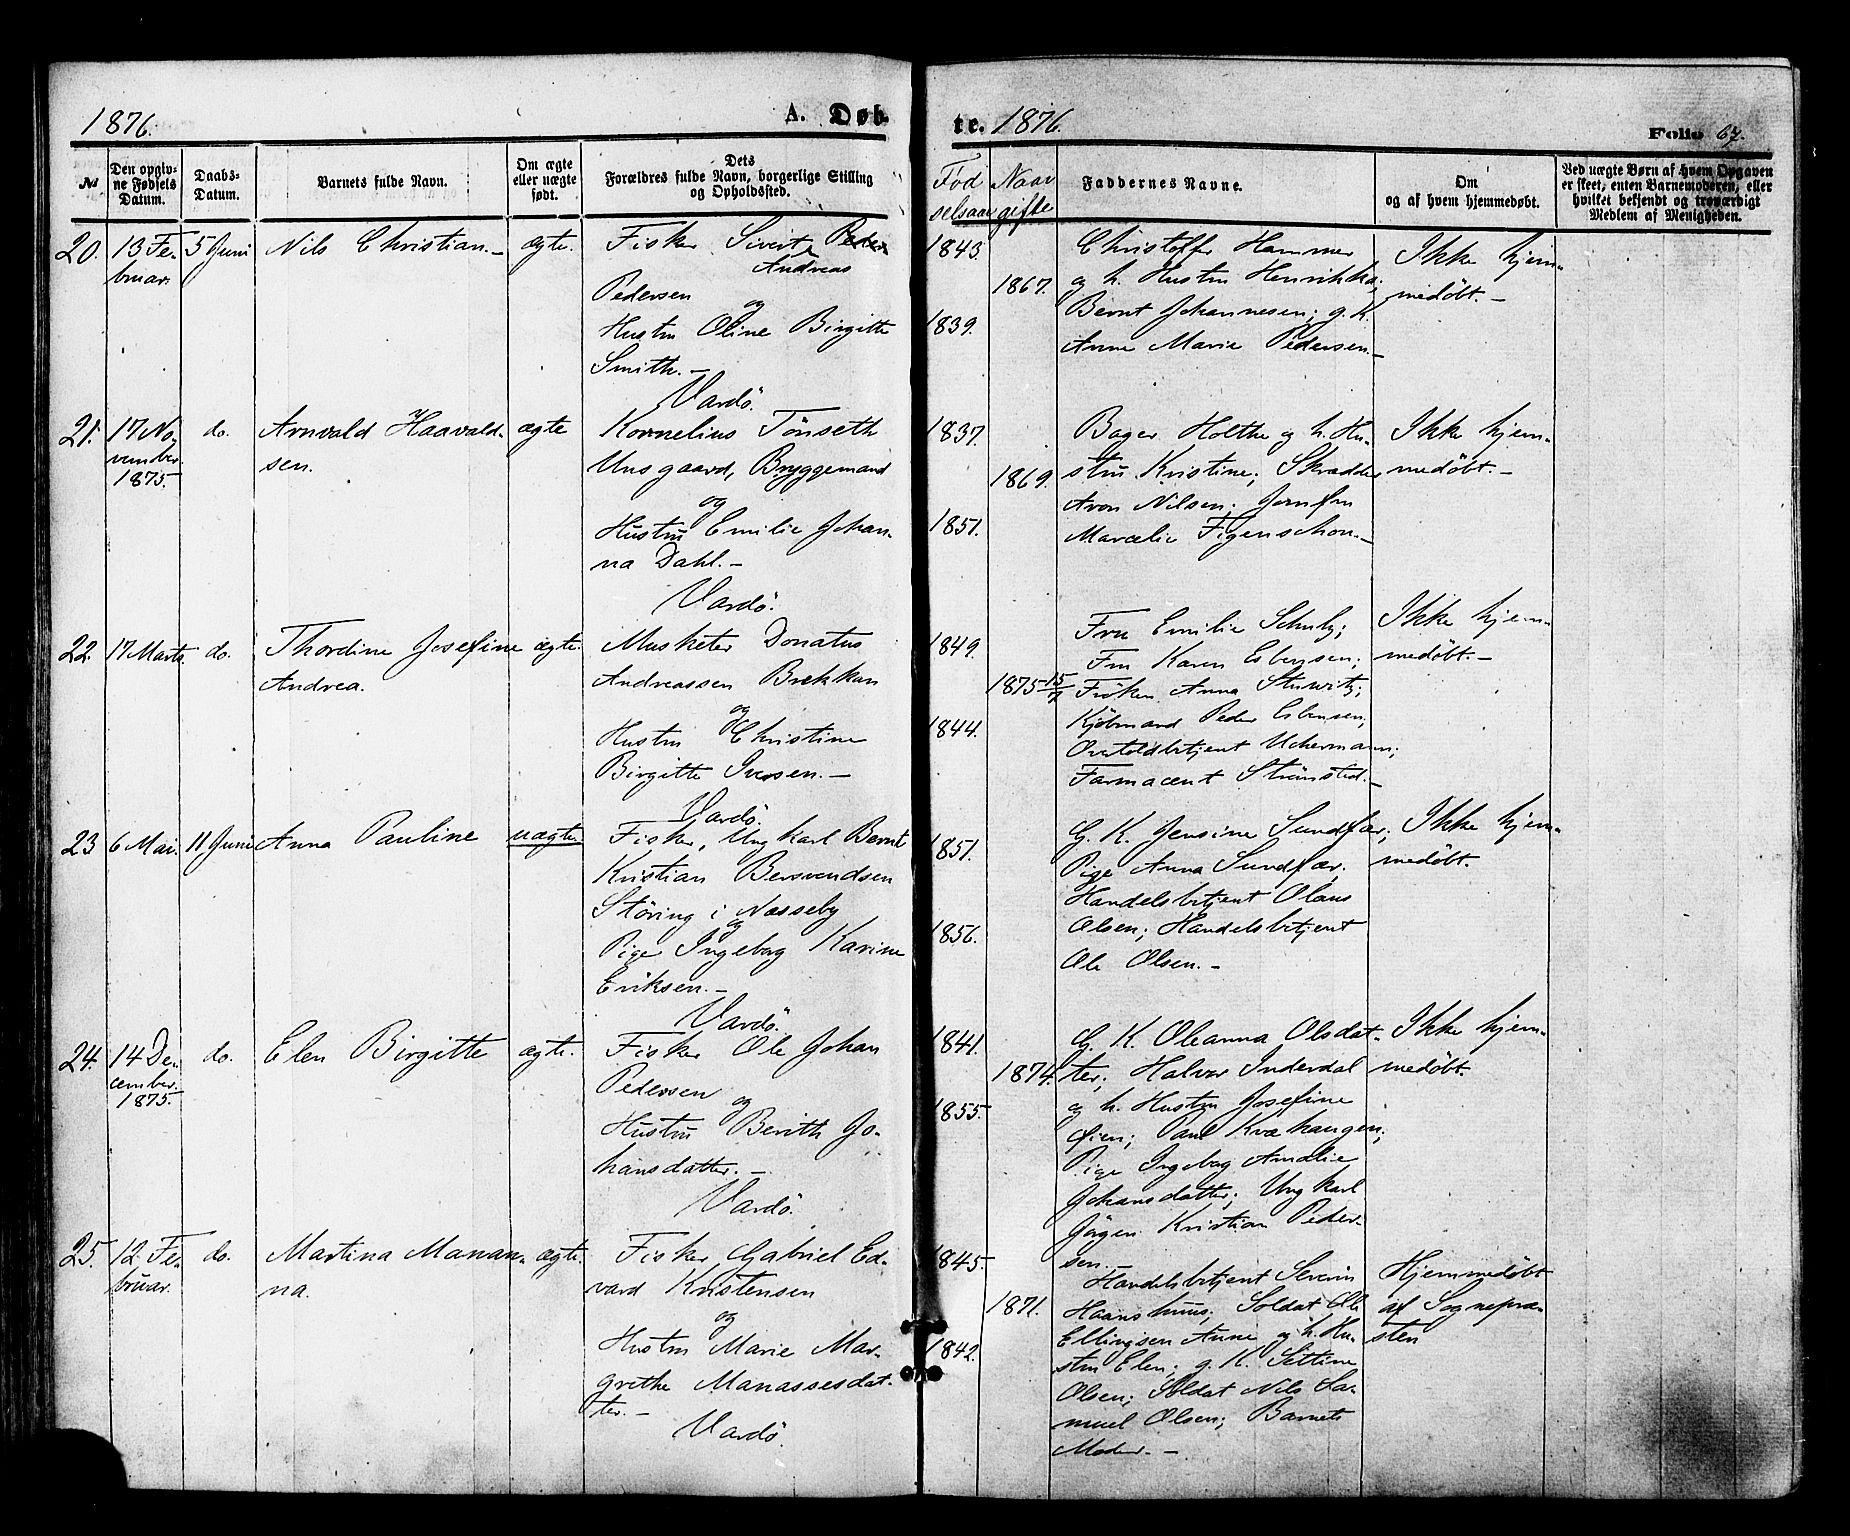 1876.
A. Døb-
te. 1876.
Folio 67.
№
Den opgiv-
ne Fødsels
Datum.
Daabs-
Datum.
Barnets fulde Navn.
Om ægte
eller uægte
født.
Dets
Forældres fulde Navn, borgerlige Stilling
og Opholdssted.
Fød
selsaar
Naar
gifte
Faddernes Navne.
Om
og af hvem hjemmedøbt.
Ved uægte Børn af hvem Opgaven
er skeet, enten Barnemoderen, eller
hvilket bekjendt og troværdigt
Medlem af Menigheden.
20.
13 Fe-
bruar.
5 Juni
Nils Christian.-
ægte.
Fisker Sivert Peder
Andreas
Pedersen
og
Hustru Oline Birgitte
Smith.-
Vardö.
1843.
1867.
1839.
Christoffer Hammer
og h. Hustru Henrikka;
Bernt Johannesen; g. K.
Anne Marie Pedersen.-
Ikke hjem-
medøbt.-
21.
17 No-
vember.
1875.
do.
Arnvald Haavald-
sen.
ægte
Kornelius Tönseth
Unsgaard, Bryggemand
og
Hustru Emilie Johan-
na Dahl.-
Vardö.
1837.
1869.
1851.
Bager Holthe og h. Hu-
stru Kristine; Skrædder
Aron Nilsen; Jomfru
Marcelie Figenschou.-
Ikke hjem-
medøbt.-
22.
17 Marts.
do.
Thordine Josefine
Andrea.
ægte.
Musketer Donatus
Andreassen Brekkan
og
Hustru Christine
Birgitte Iversen.-
Vardö.
1849.
1875 15/7
1844.
Fru Emilie Schulz;
Fru Karen Esbensen;
Frøken Anna Stuwitz;
Kjøbmand Peder Esbensen,
Overtoldbetjent Uchermann;
Farmaceut Strömsted.-
Ikke hjem-
medøbt.-
23
6 Mai.
11 Juni
Anna Pauline
uægte.
Fisker, Ungkarl Bernt
Kristian Bersvendsen
Störing i Næsseby
og
Pige Ingeborg Karine
Eriksen.-
Vardö.
1851.
1856.
G. K. Jensine Sundfær;
Pige Anna Sundfær.
Handelsbetjent Olaus
Olsen; Handelsbetjent
Ole Olsen.-
Ikke hjem-
medøbt.
24.
14 De-
cember.
1875.
do.
Elen Birgitte
ægte.
Fisker Ole Johan
Pedersen
og
Hustru Berith Jo-
hansdatter.-
Vardö.
1841.
1874.
1855.
G. K. Oleanna Olsdat-
ter; Halvor Inderdal
og h. Hustru Josefine
Øien; Paul Kvæhangen;
Pige Ingeborg Amalie
Johansdatter; Ungkarl
Jørgen Kristian Peder-
sen.
Ikke hjem-
medøbt.
25.
12 Fe-
bruar.
do.
Martina Manan-
na.
ægte.
Fisker Gabriel Ed-
vard Kristensen
og
Hustru Marie Mar-
grethe Manassesdat-
ter.-
Vardö.
1845.
1871.
1842.
Handelsbetjent Severin
Haanshuus; Soldat Ole
Ellingsen Aune og h. Hu-
stru Elen; g. K. Settine
Olsen; Soldat Nils Sa-
muel Olsen; Barnets
Moder.-
Hjemmedøbt
af Sognepræ-
sten